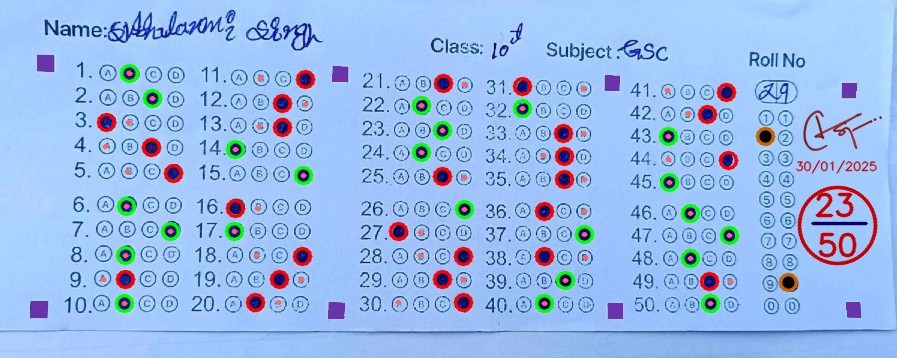 Name:
Class: 10th Subject: GSC
Roll No
29
1. A B C D
2. A B C D
3. A B C D
4. A B C D
5. A B C D
6. A B C D
7. A B C D
8. A B C D
9. A B C D
10. A B C D
11. A B C D
12. A B C D
13. A B C D
14. A B C D
15. A B C D
16. A B C D
17. A B C D
18. A B C D
19. A B C D
20. A B C D
21. A B C D
22. A B C D
23. A B C D
24. A B C D
25. A B C D
26. A B C D
27. A B C D
28. A B C D
29. A B C D
30. A B C D
31. A B C D
32. A B C D
33. A B C D
34. A B C D
35. A B C D
36. A B C D
37. A B C D
38. A B C D
39. A B C D
40. A B C D
41. A B C D
42. A B C D
43. A B C D
44. A B C D
45. A B C D
46. A B C D
47. A B C D
48. A B C D
49. A B C D
50. A B C D
1 1
2
3 3
4 4
5 5
6 6
7 7
8 8
9
0 0
30/01/2025
23
50